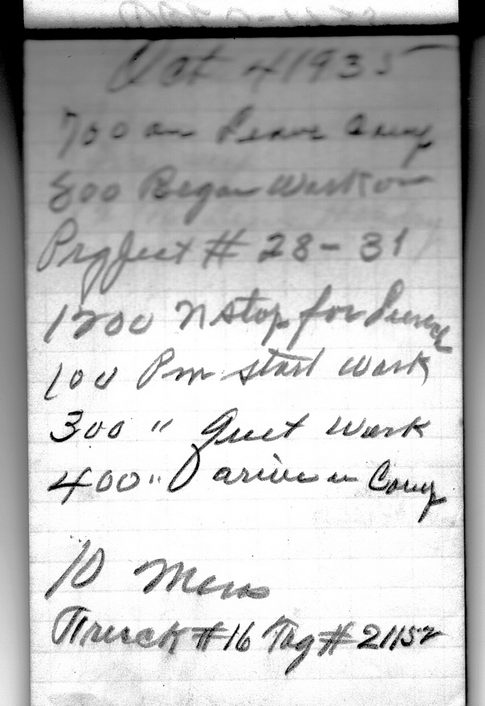 Oct 4 1935
700 am Leave Camp
800 Began Work on
Projject # 28-31
1200 N stop for Lunch
100 Pm start Work
300 " Quet Work
400 " arive in Camp
10 Mens
Truck #16 Tag # 21152